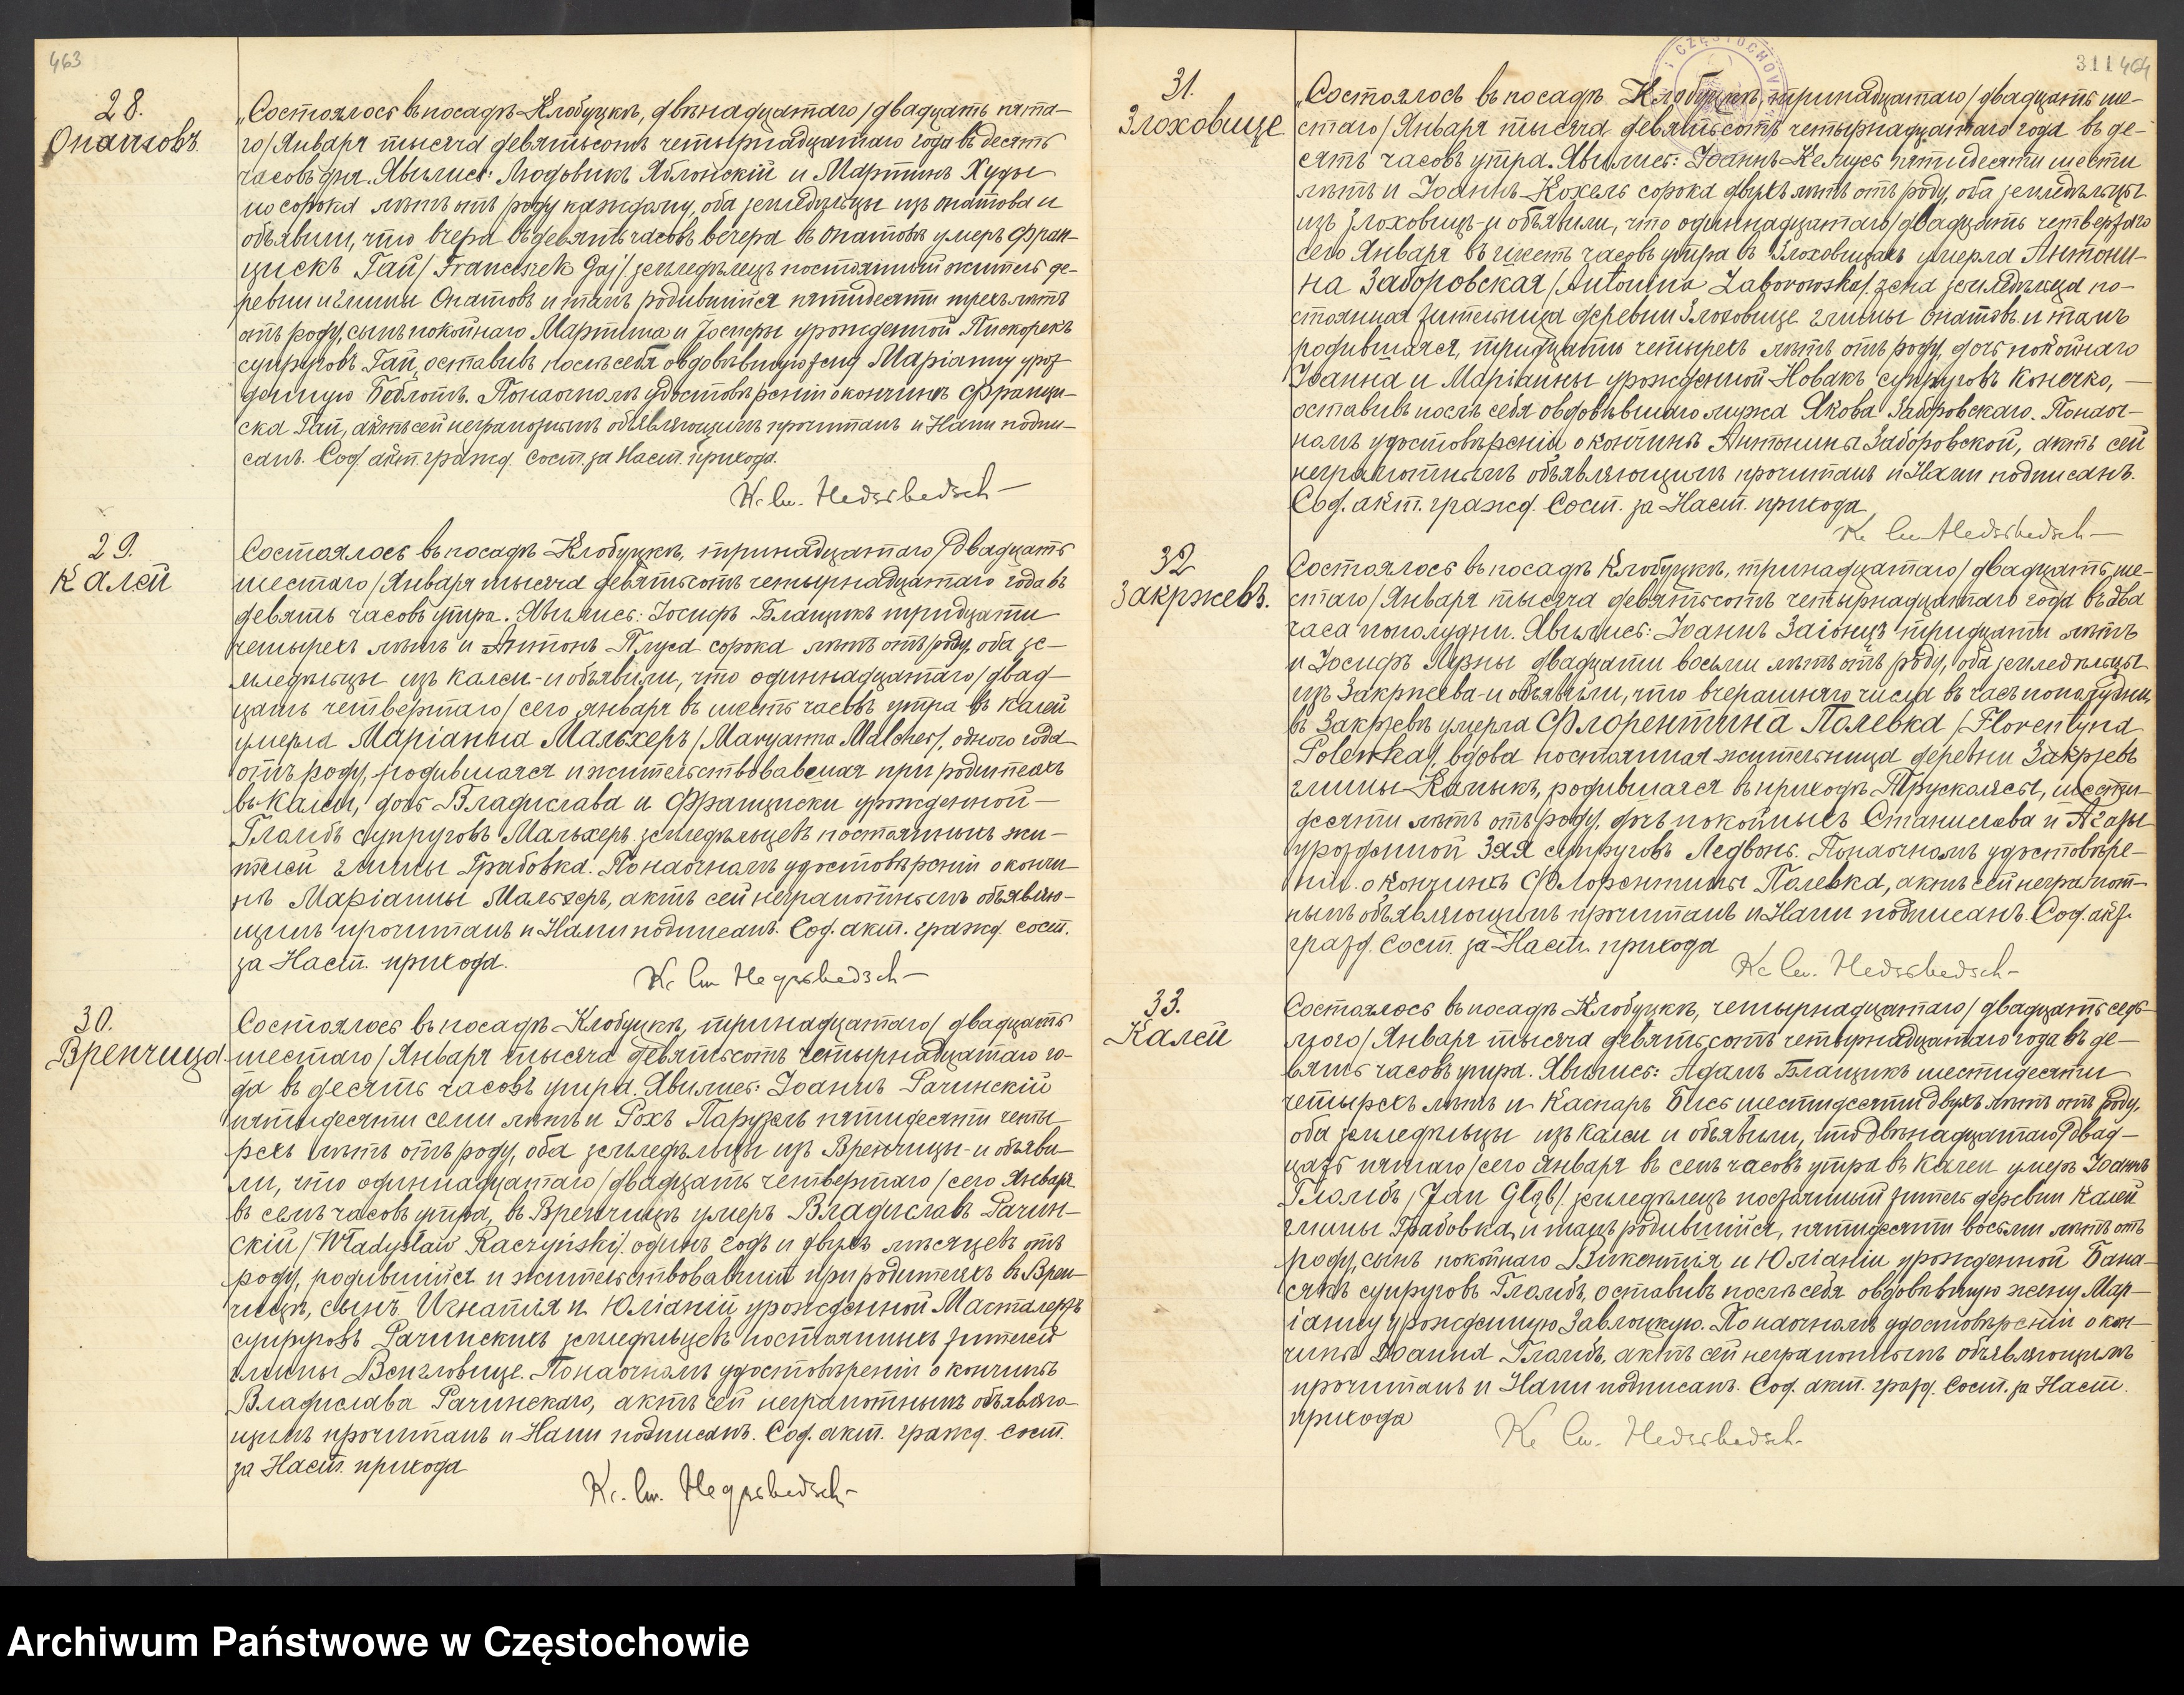 463
28.
Опатовъ
Состоялось въ посадѣ Клобуцкѣ, двѣнадцатаго /двадцать пята-
го/ Января тысяча девятьсотъ четырнадцатаго года въ десять
часовъ дня. Явились: Людовикъ Яблонскій и Мартинъ Худы
по сорока лѣтъ отъ роду каждому, оба земледѣльцы изъ Опатова и
объявили, что вчера въ девять часовъ вечера въ Опатовѣ умеръ Фран-
цискъ Гай /Franciszek Gaj/ земледѣлецъ постоянный житель де-
ревни и гмины Опатовъ и тамъ родившійся пятидесяти трехъ лѣтъ
отъ роду, сынъ покойнаго Мартина и Іосифы урожденной Пискорекъ
супруговъ Гай, оставивъ послѣ себя овдовѣвшую жену Маріанну урож-
денную Беблотъ. По наочномъ удостовѣреніи о кончинѣ Францис-
ка Гай, актъ сей неграмотнымъ объявляющимъ прочитанъ и Нами подпи-
санъ. Сод. акт. гражд. сост. за Наст. прихода.
29.
Калей
Состоялось въ посадѣ Клобуцкѣ, тринадцатаго /двадцать
шестаго/ Января тысяча девятьсотъ четырнадцатаго года въ
девять часовъ утра. Явились: Іосифъ Блащикъ тридцати
четырехъ лѣтъ и Антонъ Плуса сорока лѣтъ отъ роду, оба зе-
мледѣльцы изъ Калеи - и объявили, что одиннадцатаго /двад-
цать четвертаго/ сего Января въ шесть часовъ утра въ Калеи
умерла Маріанна Мальхеръ /Maryanna Malcher/, одного года
отъ роду, родившаяся и жительствовавшая при родителяхъ
въ Калеи, дочь Владислава и Францишки урожденной -
Гломбъ супруговъ Мальхеръ земледѣльцевъ постоянныхъ жи-
телей гмины Грабовка. По наочномъ удостовѣреніи о кончи-
нѣ Маріанны Мальхеръ, актъ сей неграмотнымъ объявляю-
щимъ прочитанъ и Нами подписанъ. Сод. акт. гражд. сост.
за Наст. прихода.
30.
Вренчица
Состоялось въ посадѣ Клобуцкѣ, тринадцатаго /двадцать
шестаго/ Января тысяча девятьсотъ четырнадцатаго го-
да въ десять часовъ утра. Явились: Іоаннъ Рачинскій
пятидесяти семи лѣтъ и Рохъ Парузель пятидесяти четы-
рехъ лѣтъ отъ роду, оба земледѣльцы изъ Вренчицы - и объяви-
ли, что одиннадцатаго /двадцать четвертаго/ сего Января
въ семь часовъ утра, въ Вренчицѣ умеръ Владиславъ Рачин-
скій /Władysław Raczyński/ одинъ годъ и двухъ мѣсяцевъ отъ
роду, родившійся и жительствовавшій при родителяхъ въ Врен-
чицѣ, сынъ Игнатія и Юліаніи урожденной Масталержъ
супруговъ Рачинскихъ земледѣльцевъ постоянныхъ жителей
гмины Венгловице. По наочномъ удостовѣреніи о кончинѣ
Владислава Рачинскаго, актъ сей неграмотнымъ объявляю-
щимъ прочитанъ и Нами подписанъ. Сод. акт. гражд. сост.
за Наст. прихода
311 464
31.
Злоховице
Состоялось въ посадѣ Клобуцкѣ, тринадцатаго /двадцать ше-
стаго/ Января тысяча девятьсотъ четырнадцатаго года въ де-
сять часовъ утра. Явились: Іоаннъ Келусь пятидесяти шести
лѣтъ и Іоаннъ Кохель сорока двухъ лѣтъ отъ роду, оба земледѣльцы
изъ Злоховицъ - и объявили, что одиннадцатаго /двадцать четвертаго
сего Января въ шесть часовъ утра въ Злоховицахъ умерла Антони-
на Заборовская /Antonina Zaborowska/ жена земледѣльца по-
стоянная жительница деревни Злоховице гмины Опатовъ и тамъ
родившаяся, тридцати четырехъ лѣтъ отъ роду, дочь покойнаго
Іоанна и Маріанны урожденной Новакъ супруговъ Конечко, -
оставивъ послѣ себя овдовѣвшаго мужа Якова Заборовскаго. По наоч-
номъ удостовѣреніи о кончинѣ Антонины Заборовской, актъ сей
неграмотнымъ объявляющимъ прочитанъ и Нами подписанъ.
Сод. акт. гражд. Сост. за Наст. прихода
32
Закржевъ.
Состоялось въ посадѣ Клобуцкѣ, тринадцатаго /двадцать ше-
стаго/ Января тысяча девятьсотъ четырнадцатаго года въ два
часа пополудни. Явились: Іоаннъ Заіонцъ тридцати лѣтъ
и Іосифъ двадцати восьми лѣтъ отъ роду, оба земледѣльцы
изъ Закржева - и объявили, что вчерашняго числа въ часъ пополудни,
въ Закржевѣ умерла Флорентина Полевка /Florentyna
Polewka/, вдова постоянная жительница деревни Закржевъ
гмины Камыкъ, родившаяся въ приходѣ Трусколясы, шести-
десяти лѣтъ отъ роду, дочь покойныхъ Станислава и Агаты
урожденной Зая супруговъ Ледвонь. По наочномъ удостовѣре-
ніи о кончинѣ Флорентины Полевка, актъ сей неграмот-
нымъ объявляющимъ прочитанъ и Нами подписанъ. Сод. акт.
гражд. Сост. за Наст. прихода
33.
Калей
Состоялось въ посадѣ Клобуцкѣ, четырнадцатаго /двадцать седь-
мого/ Января тысяча девятьсотъ четырнадцатаго года въ де-
вять часовъ утра. Явились: Адамъ Блащикъ шестидесяти
четырехъ лѣтъ и Каспаръ Бись шестидесяти двухъ лѣтъ отъ роду,
оба земледѣльцы изъ Калеи и объявили, что двѣнадцатаго /двад-
цать пятаго/ сего Января въ семь часовъ утра въ Калеи умеръ Іоаннъ
Гломбъ /Jan Głąb/ земледѣлецъ постоянный житель деревни Калей
гмины Грабовка, и тамъ родившійся, пятидесяти восьми лѣтъ отъ
роду, сынъ покойнаго Викентія и Юліаніи урожденной Бана-
сякъ супруговъ Гломбъ, оставивъ послѣ себя овдовѣвшую жену Мар-
іанну урожденную Завлоцкую. По наочномъ удостовѣреніи о кон-
чинѣ Іоанна Гломбъ, актъ сей неграмотнымъ объявляющимъ
прочитанъ и Нами подписанъ. Сод. акт. гражд. Сост. за Наст.
прихода
Archiwum Państwowe w Częstochowie